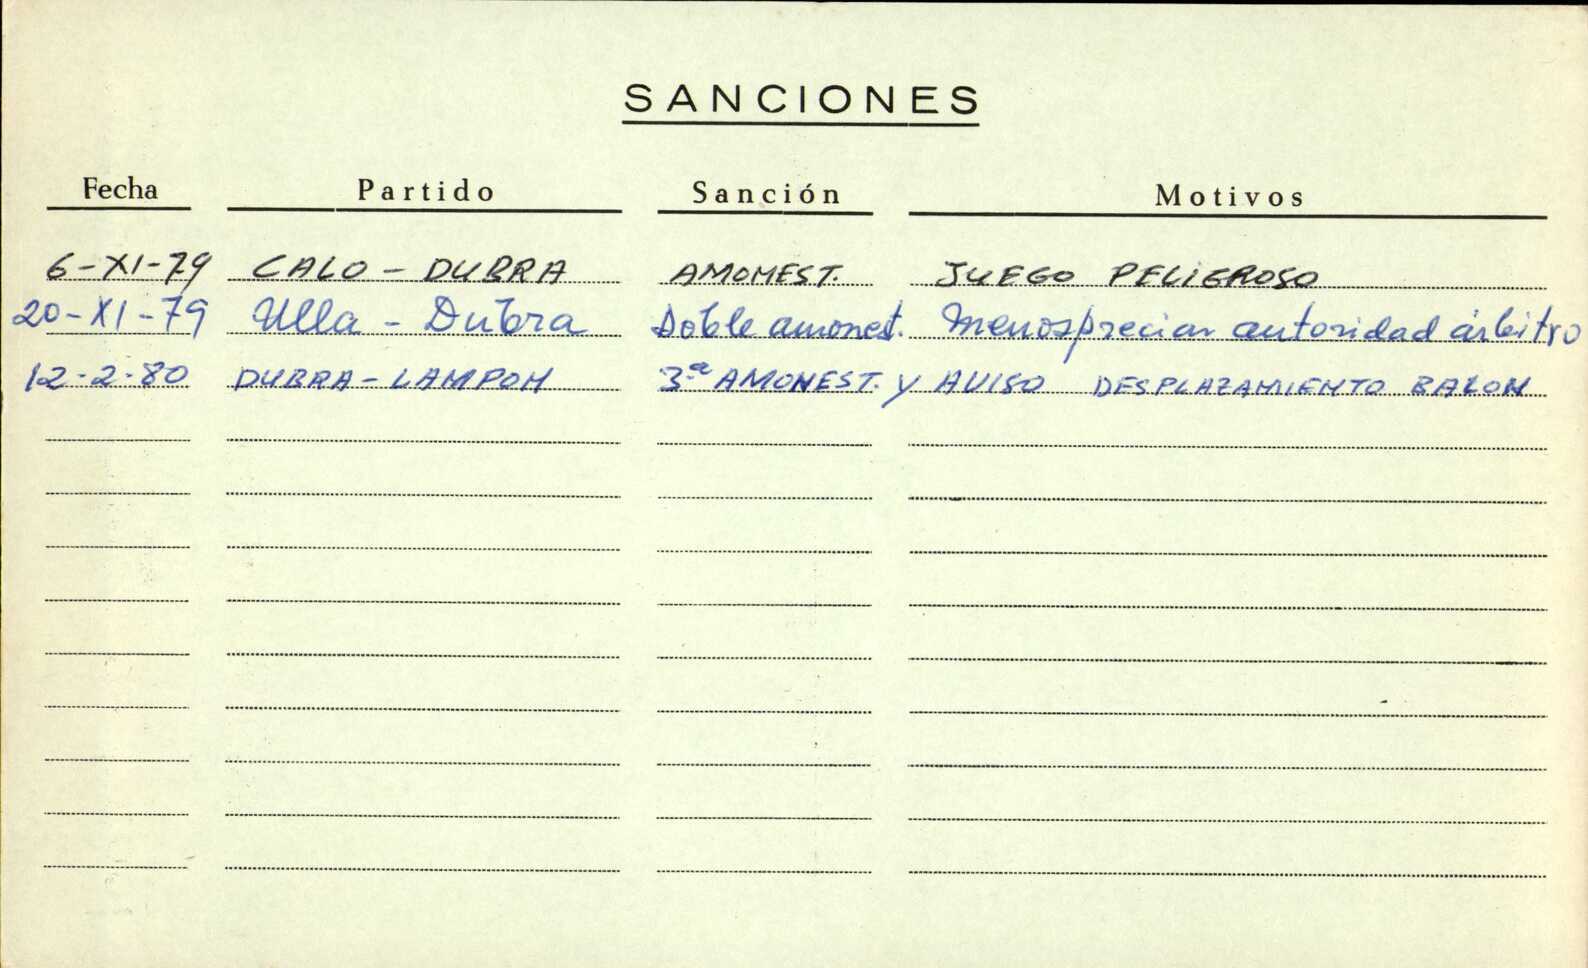 SANCIONES
Fecha Partido Sanción Motivos
6-XI-79 CALO - DUBRA AMONEST. JUEGO PELIGROSO
20-XI-79 Ulla - Dubra Doble amonest. Menospreciar autoridad árbitro
12-2-80 DUBRA - LAMPON 3ª AMONEST. y AVISO DESPLAZAMIENTO BALON